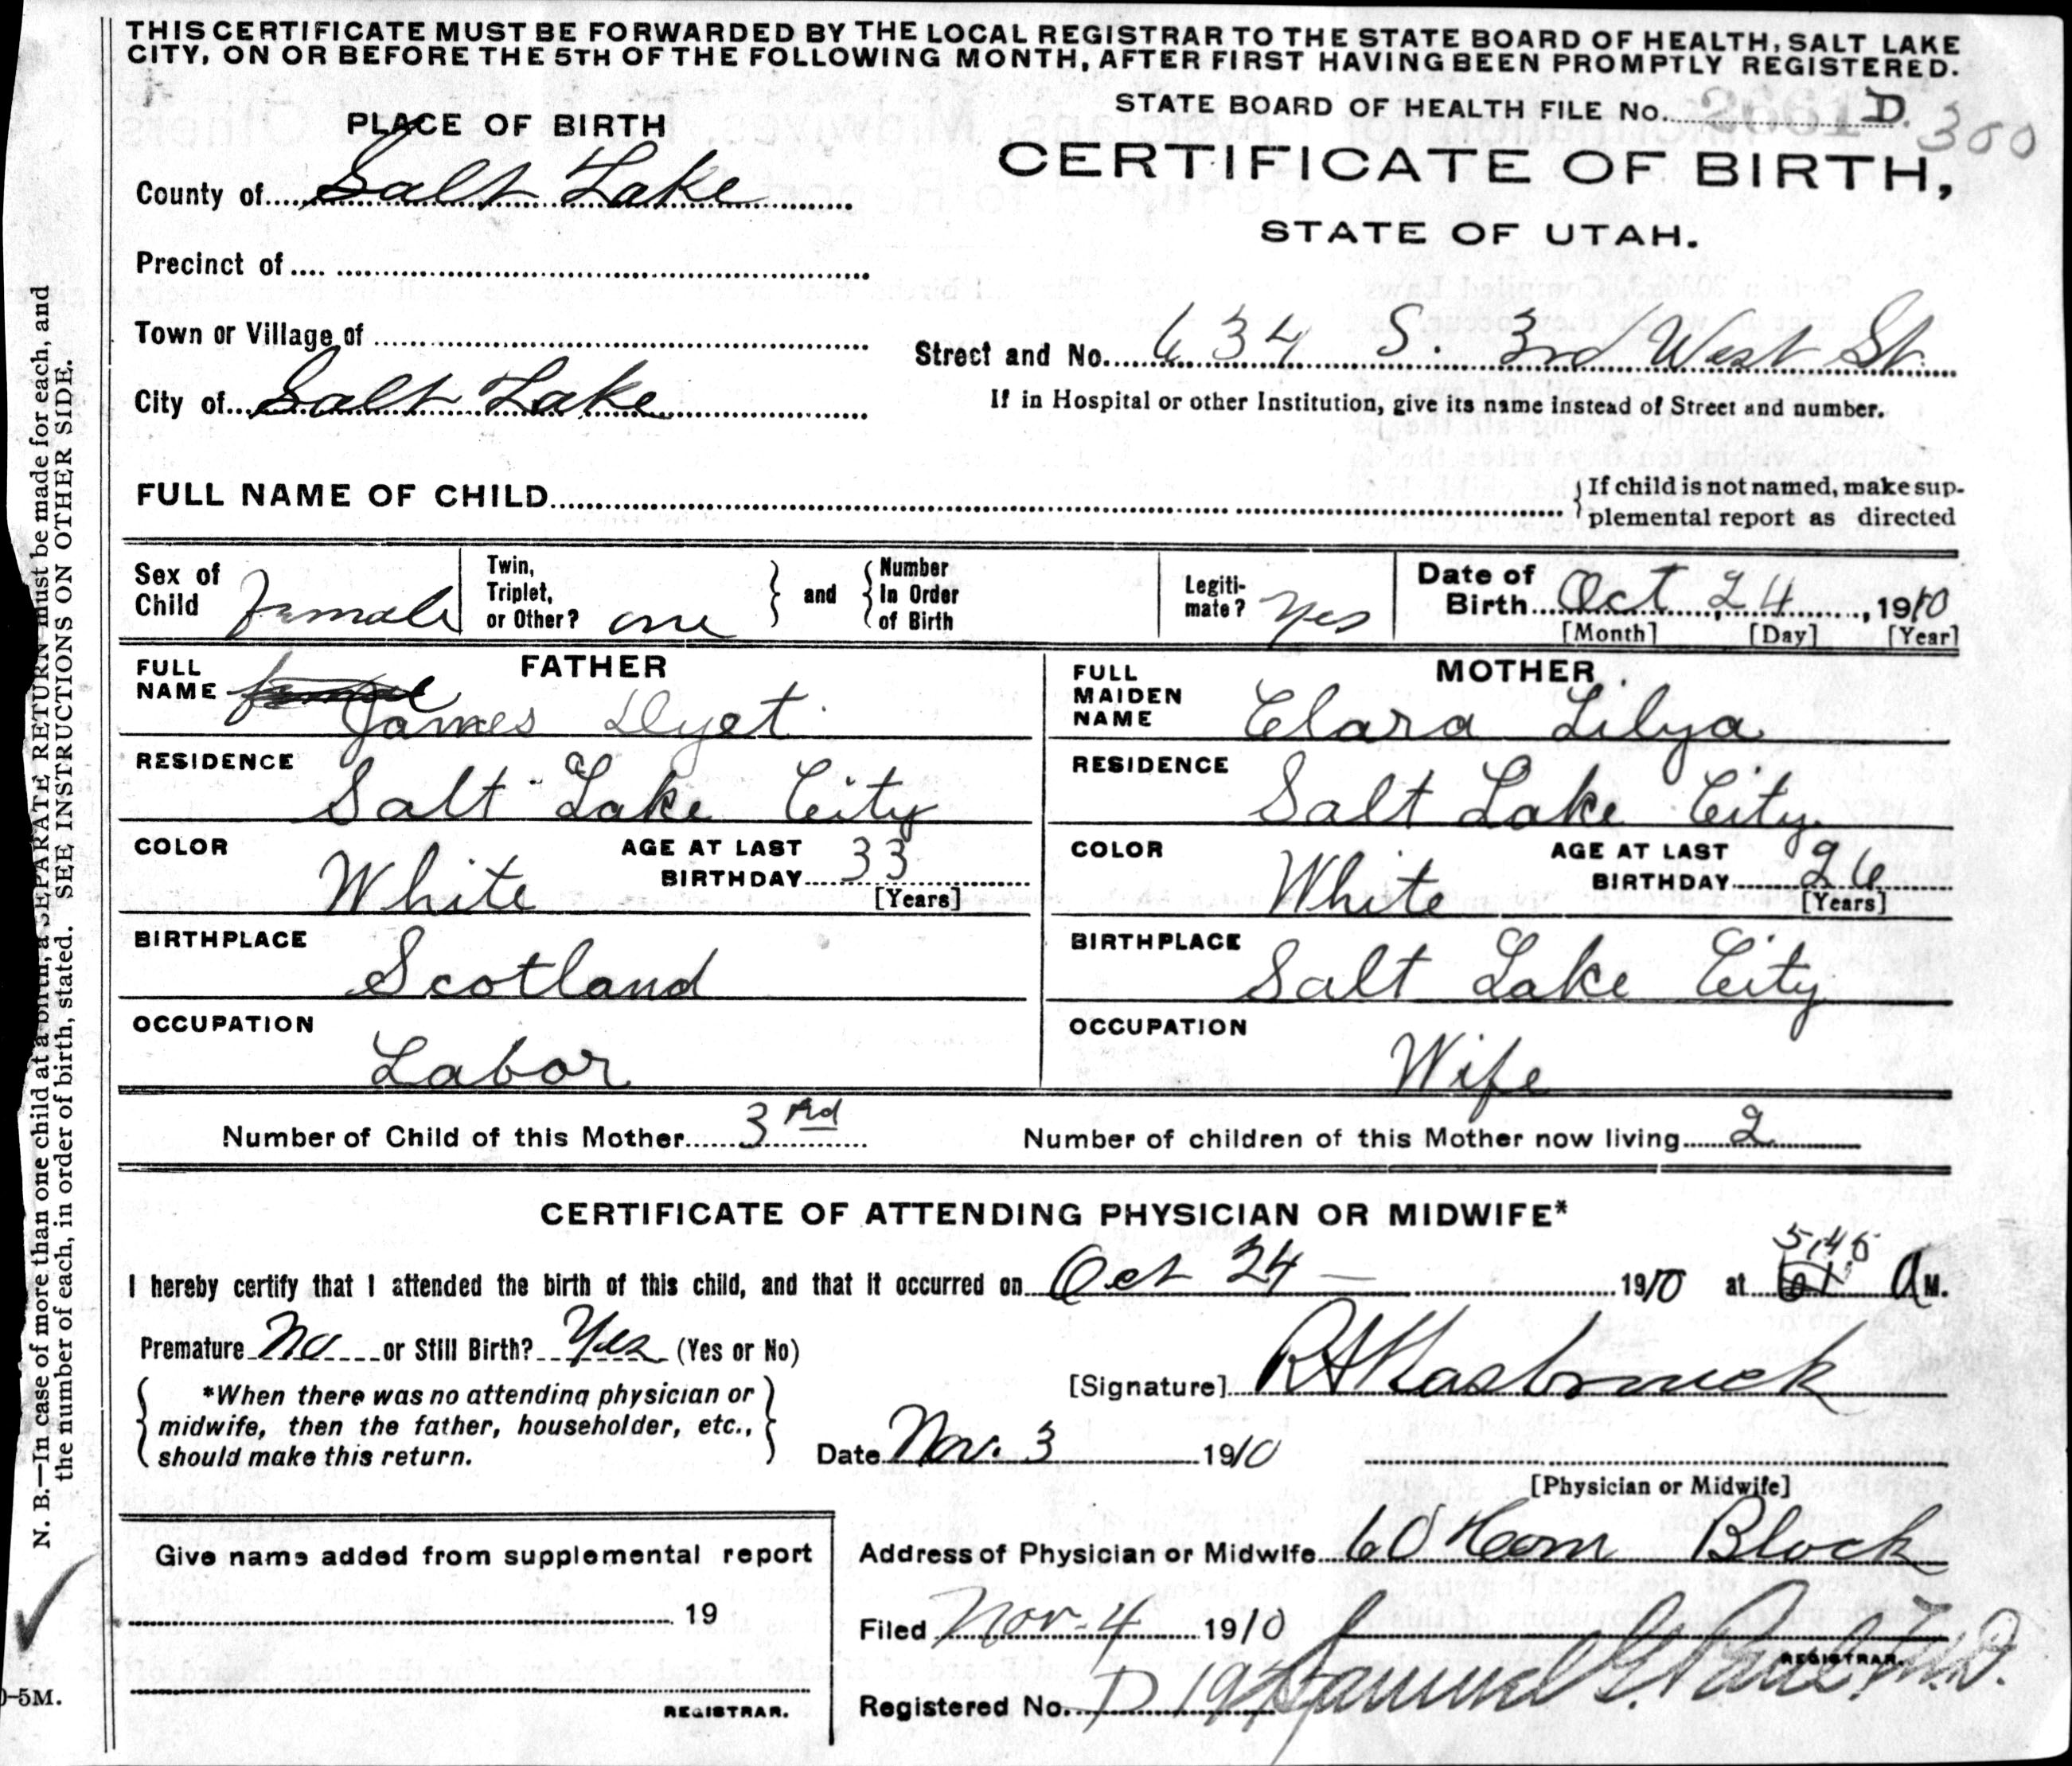 THIS CERTIFICATE MUST BE FORWARDED BY THE LOCAL REGISTRAR TO THE STATE BOARD OF HEALTH, SALT LAKE
CITY, ON OR BEFORE THE 5TH OF THE FOLLOWING MONTH, AFTER FIRST HAVING BEEN PROMPTLY REGISTERED.
STATE BOARD OF HEALTH FILE No. D. 300
PLACE OF BIRTH
CERTIFICATE OF BIRTH,
STATE OF UTAH.
County of Salt Lake
Precinct of
Town or Village of
Street and No. 634 S. 3rd West St.
City of Salt Lake
If in Hospital or other Institution, give its name instead of Street and number.
FULL NAME OF CHILD
If child is not named, make sup-
plemental report as directed
Sex of Child female
Twin, Triplet, or Other? one
and
Number In Order of Birth
Legiti-mate? yes
Date of Birth Oct 24, 1910
[Month] [Day] [Year]
FATHER
FULL NAME James Dyet
RESIDENCE Salt Lake City
COLOR White
AGE AT LAST BIRTHDAY 33
[Years]
BIRTHPLACE Scotland
OCCUPATION Labor
MOTHER
FULL MAIDEN NAME Clara Lilya
RESIDENCE Salt Lake City
COLOR White
AGE AT LAST BIRTHDAY 26
[Years]
BIRTHPLACE Salt Lake City
OCCUPATION Wife
Number of Child of this Mother 3rd
Number of children of this Mother now living 2
CERTIFICATE OF ATTENDING PHYSICIAN OR MIDWIFE*
I hereby certify that I attended the birth of this child, and that it occurred on Oct 24 1910 at 5:45 A M.
Premature No or Still Birth? Yes (Yes or No)
*When there was no attending physician or
midwife, then the father, householder, etc.,
should make this return.
[Signature] R A Hasbrouck
Date Nov. 3 1910
[Physician or Midwife]
Give name added from supplemental report
19
REGISTRAR.
Address of Physician or Midwife Block
Filed Nov. 4 1910
REGISTRAR.
Registered No. D Samuel G. Paul, M.D.
N. B.—In case of more than one child at a birth, a SEPARATE RETURN must be made for each, and
the number of each, in order of birth, stated. SEE INSTRUCTIONS ON OTHER SIDE.
-5M.